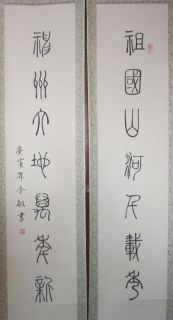 祖國山河尺載秀
神州大地異葉新
庚寅年今敏書